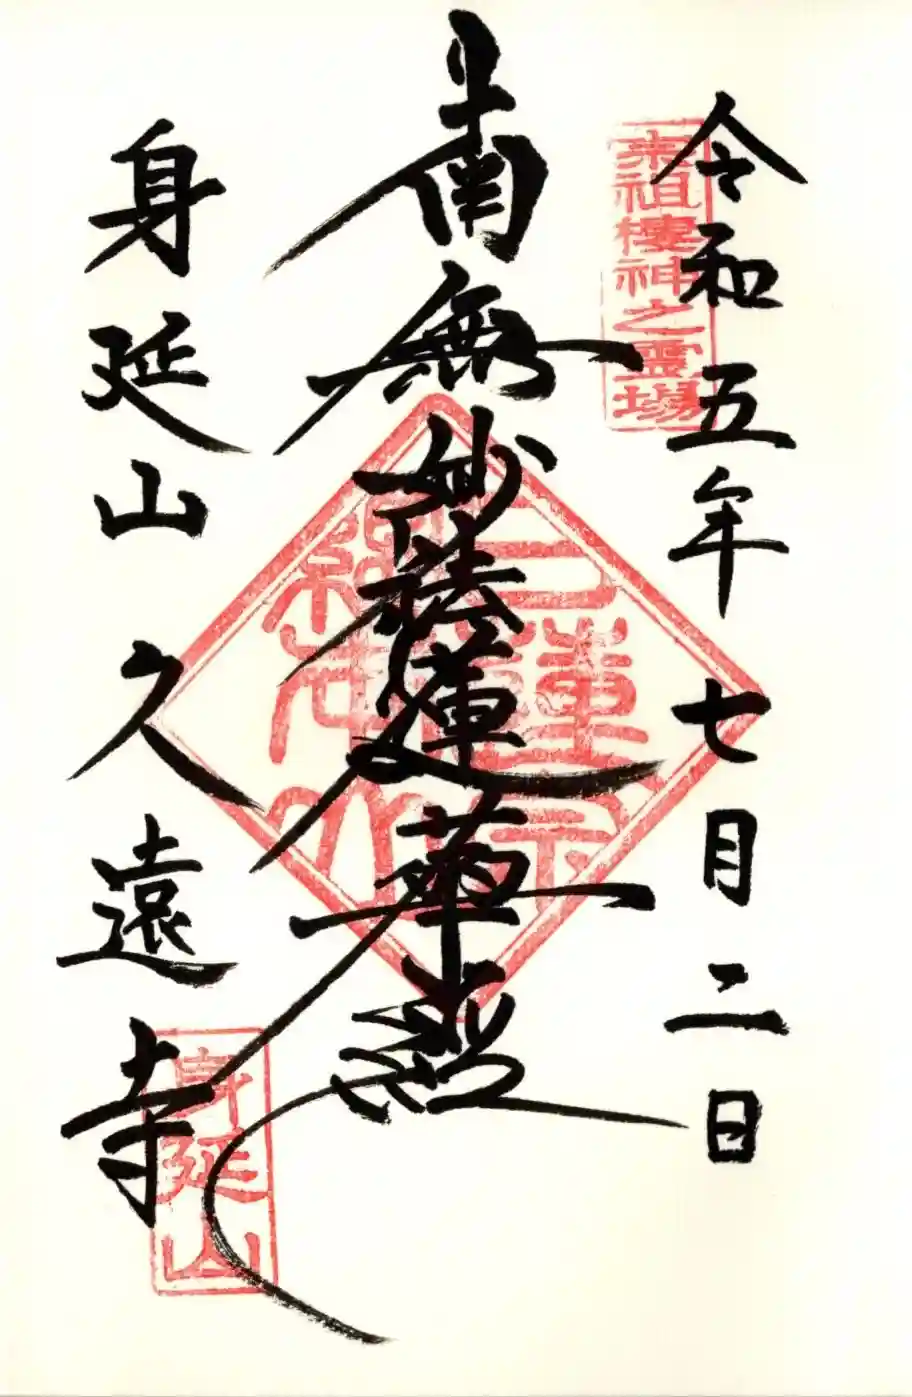 令和五年七月二日
宗祖棲神之霊場
南無妙法蓮華経
日蓮宗
総本山
身延山久遠寺
身延山